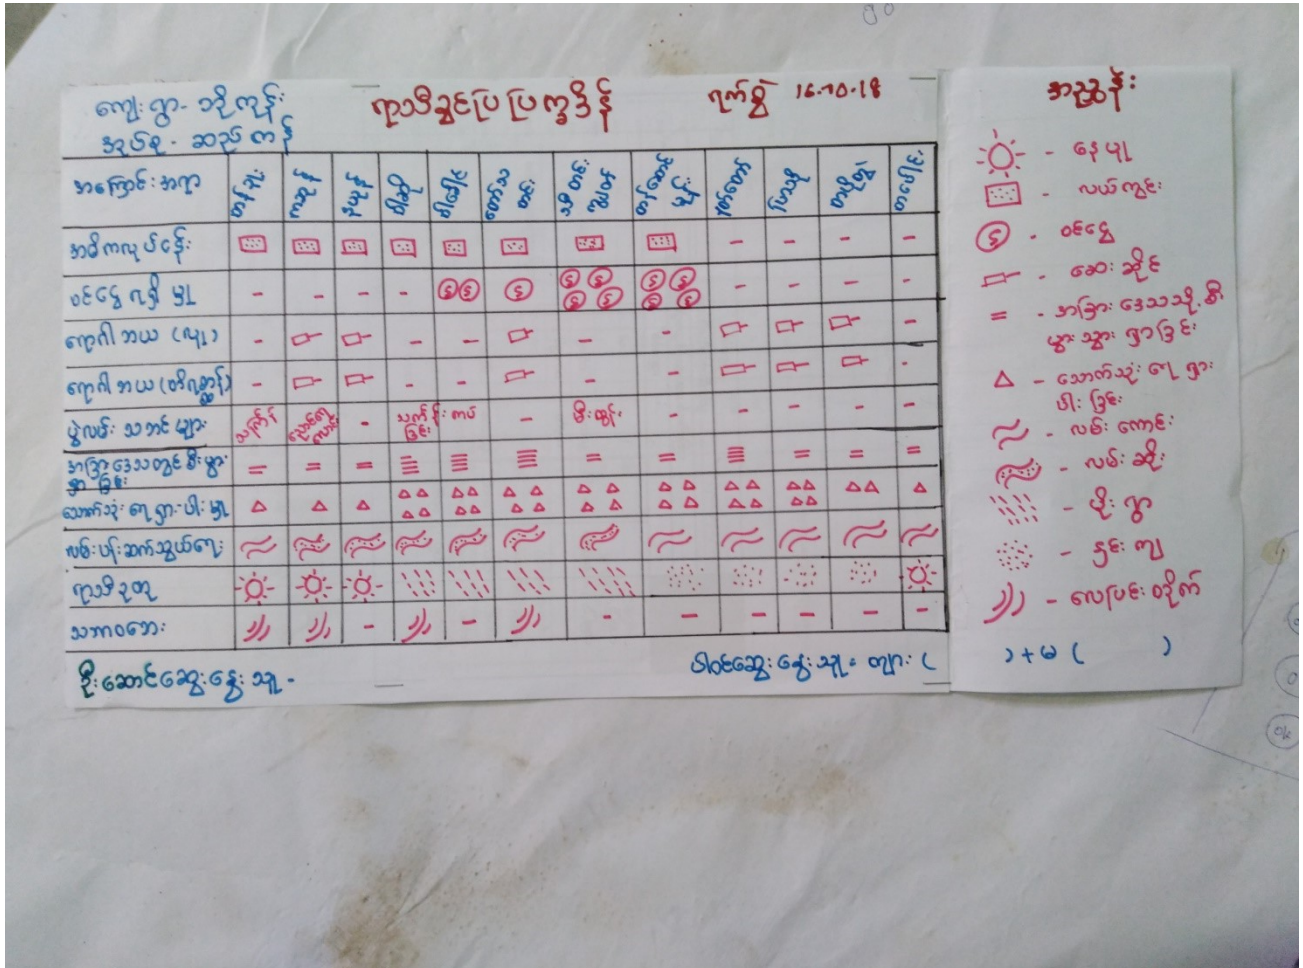 ကျေးရွာ - ဘိုကုန်း
အုပ်စု - ဆည်ကန်
ရာသီခွင်ပြပြက္ခဒိန်
ရက်စွဲ 16-10-18
အကြောင်းအရာ တန်ခူး ကဆုန် နယုန် ဝါဆို ဝါခေါင် တော်သလင်း သီတင်းကျွတ် တန်ဆောင်မုန်း နတ်တော် ပြာသို တပို့တွဲ တပေါင်း
အဓိကလုပ်ငန်း - - - -
ဝင်ငွေရရှိမှု - - - - - - - -
ရောဂါဘယ (လူ) - - - - - -
ရောဂါဘယ (တိရစ္ဆာန်) - - - - - -
ပွဲလမ်းသဘင်များ သင်္ကြန် ညောင်ရေလောင်း - သင်္ကန်းကပ် - မီးထွန်း - - - - -
အခြားဒေသတွင်စီးပွားရှာခြင်း = = = ≡ ≡ ≡ = = ≡ = = =
သောက်သုံးရေရှားပါးမှု
လမ်းပန်းဆက်သွယ်ရေး
ရာသီဥတု
သဘာဝဘေး - - - - - - - -
ဦးဆောင်ဆွေးနွေးသူ -
ပါဝင်ဆွေးနွေးသူ = ကျား ( ) + မ ( )
အညွှန်း
- နေပူ
- လယ်ကွင်း
- ဝင်ငွေ
- ဆေးဆိုင်
= - အခြားဒေသသို့ စီး
ပွားသွားရှာခြင်း
△ - သောက်သုံးရေရှား
ပါးခြင်း
- လမ်းကောင်း
- လမ်းဆိုး
- မိုးရွာ
- နှင်းကျ
- လေပြင်းတိုက်